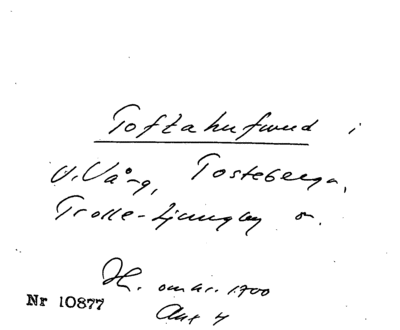 Toftahufwud i
V. Vång, Tosteberga,
Trolle-Ljungby s.
omkr. 1700
Nr 10877